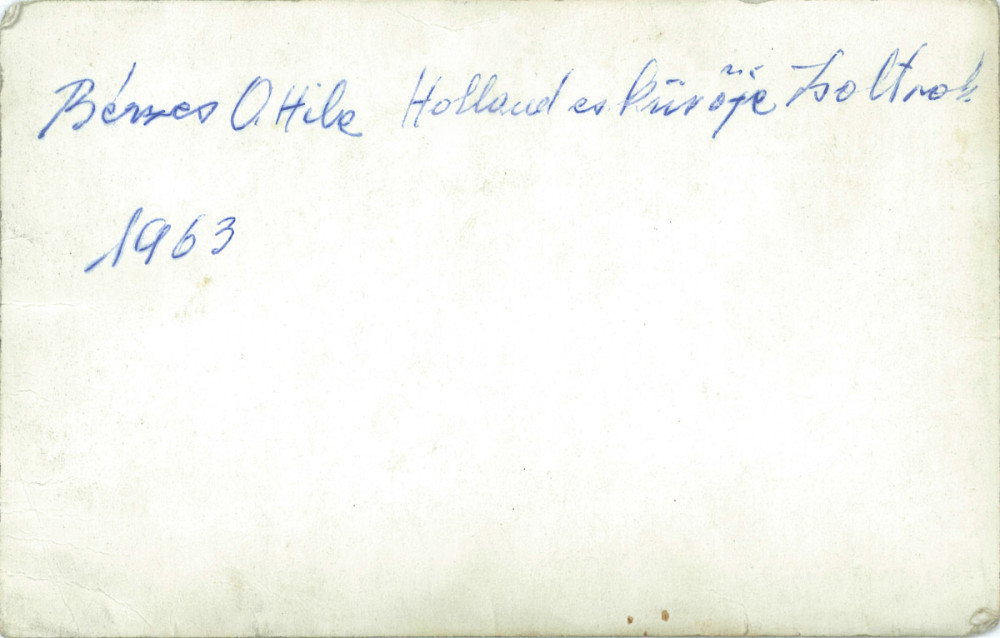 Bérzes Ottile Holland esküvője Zsoltnak
1963